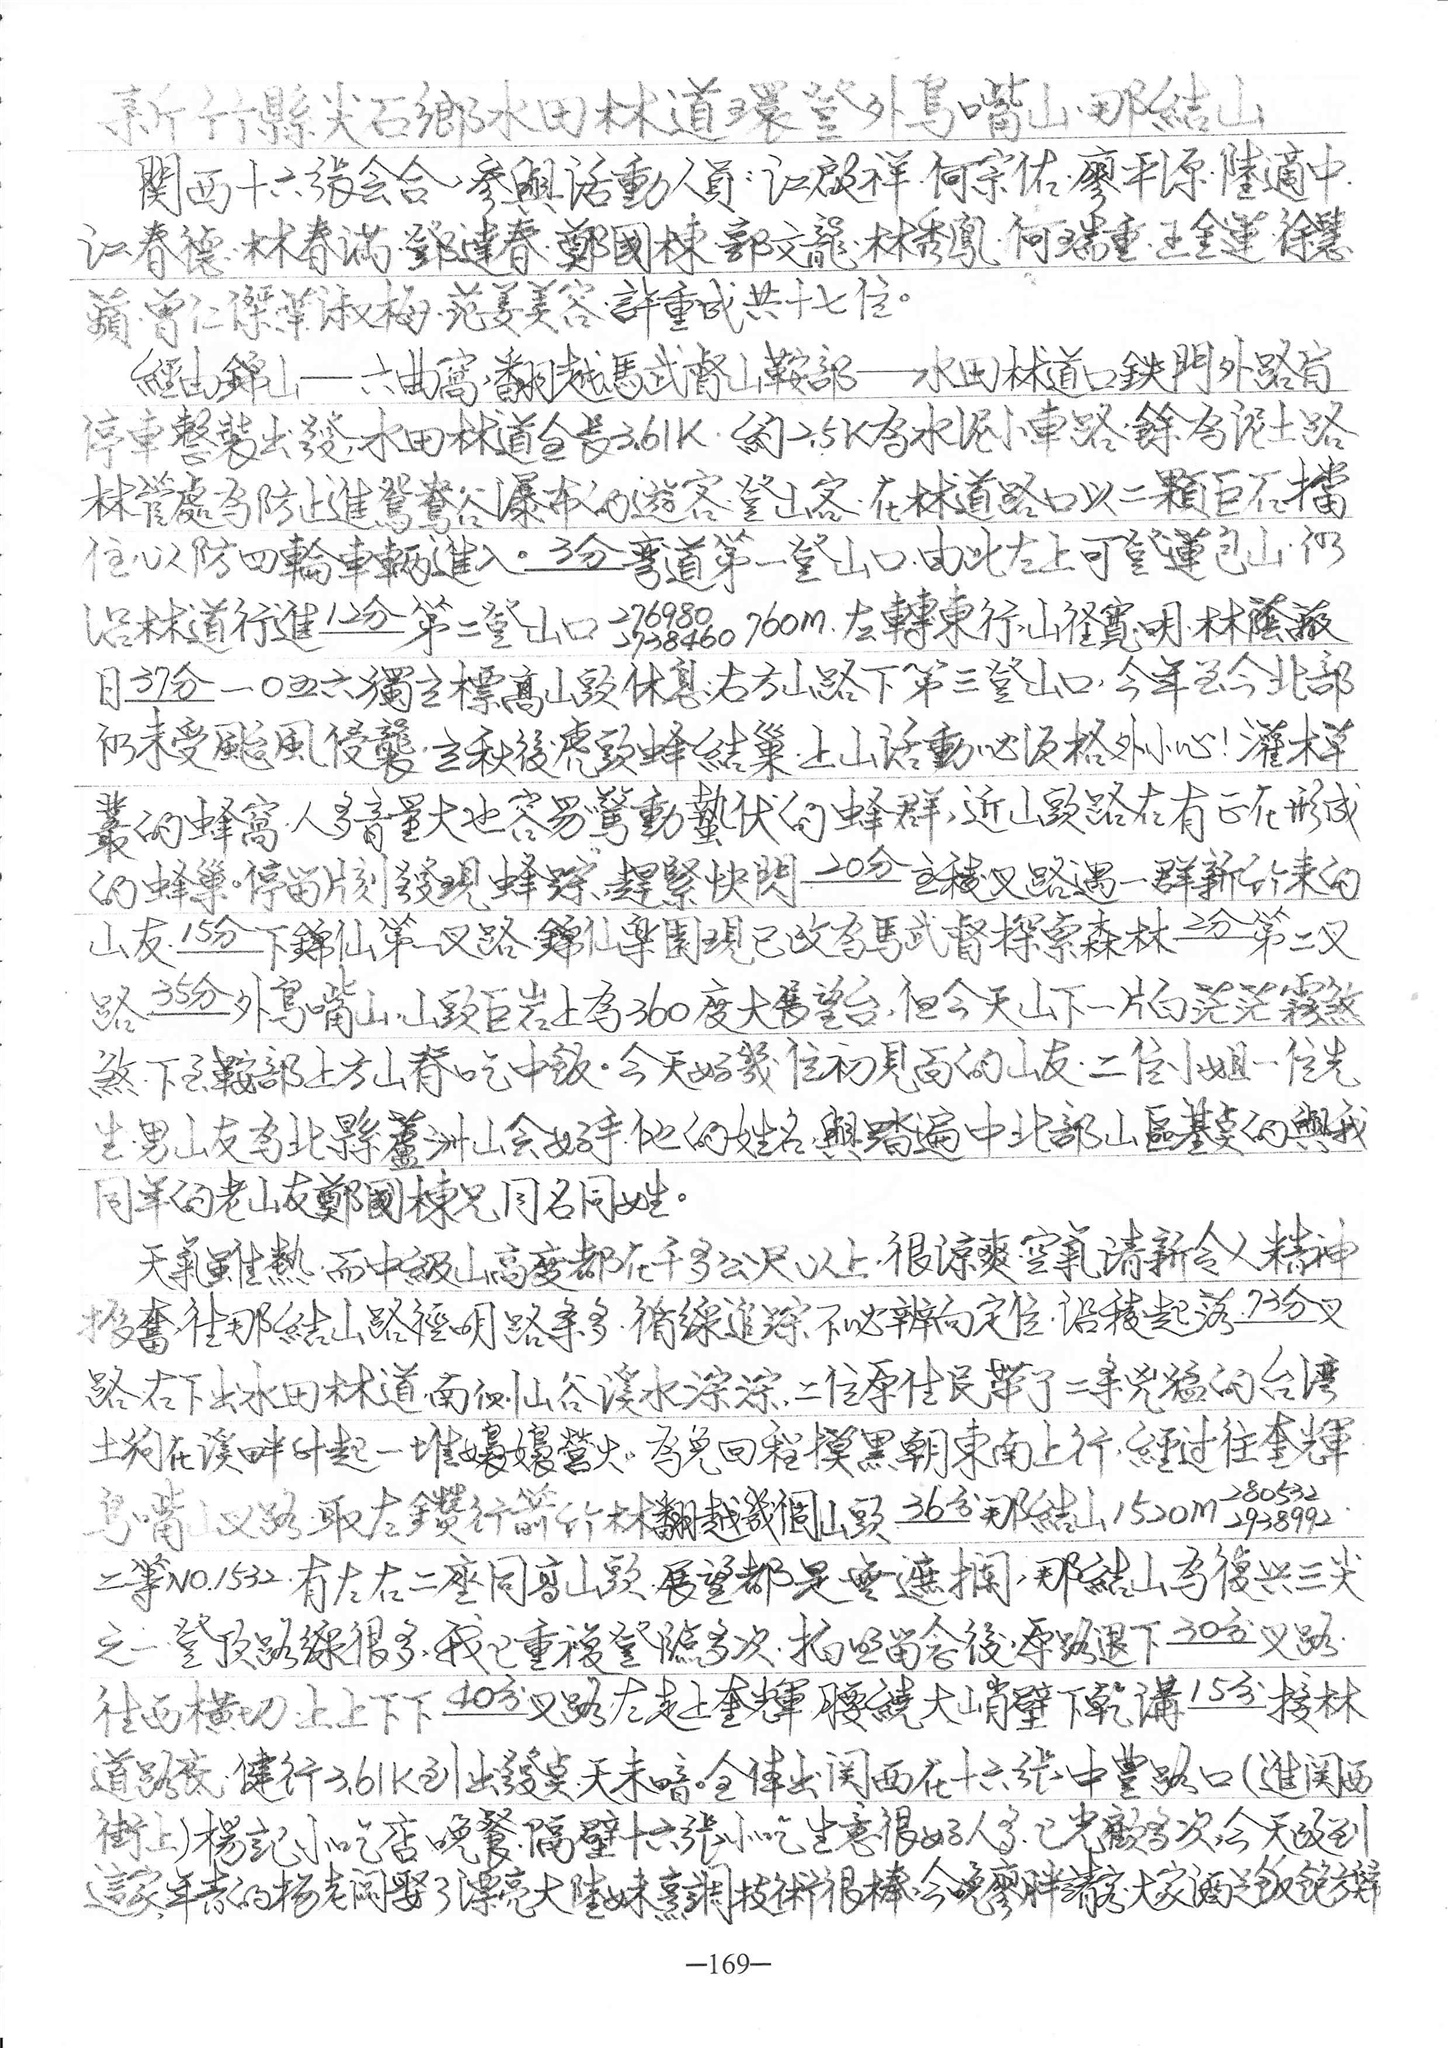 新竹縣尖石鄉水田林道環登外鳥嘴山.那結山
関西十六張会合、參與活動人員:江啟祥.何宗佑.廖平源.陸適中.
江春德.林春滿.鄧達春.鄭國棟.郭文龍.林秀鳳.何瑞重.王金蓮.徐慧
蘋.曾仁傑.葉淑梅.范姜美容.許重成共十七位。
經由錦山——六曲窩、翻越馬武督山鞍部——水田林道口鉄門外路肓
停車整裝出發,水田林道全長3.61K.約2.5K為水泥小車路.餘為泥土路
林管處為防止進鴛鴦谷瀑布的遊客.登山客.在林道路口以二顆巨石擋
住以防四輪車輛進入。3分弯道第一登山口.由此左上可登蓮包山.仍
沿林道行進12分第二登山口 276980 2738460 760m.左轉東行,山徑寬明.林蔭蔽
日37分一〇五六獨立標高山頭休息.右方山路下第三登山口.今年至今北部
仍未受颱風侵襲.立秋後虎頭蜂結巢.上山活動必須格外小心!灌木草
叢的蜂窩.人多音量大也容易驚動蟄伏的蜂群,近山頭路右有正在形成
的蜂巢.停留片刻發現蜂踪.趕緊快閃20分主稜叉路遇一群新竹來的
山友.15分下錦仙第一叉路.錦仙樂園現已改為馬武督探索森林2分第二叉
路35分外鳥嘴山.山頭巨岩上為360度大展望台,但今天山下一片白茫茫霧煞
煞.下至鞍部上方山脊吃中飯。今天好幾位初見面的山友.二位小姐一位先
生.男山友為北縣蘆洲山会好手.他的姓名與踏遍中北部山區基點的與我
同年的老山友鄭國棟兄同名同姓。
天氣雖熱.而中級山高度都在千多公尺以上.很涼爽.空氣清新令人精神
振奮,往那結山路徑明路条多.循線追踪不必辨向定位.沿稜起落73分叉
路.右下出水田林道.南側山谷溪水淙淙,二位原住民帶了二条兇猛的台湾
土狗在溪畔升起一堆孃孃營火。為免回程摸黑朝東南上行.經过往奎輝
鳥嘴山叉路.取左鑽行箭竹林翻越幾個山頭36分那結山1520m 280532 2938992.
二等NO.1532.有左右二座同高山頭.展望都是無遮攔,那結山為復兴三尖
之一.登頂路線很多,我已重複登臨多次.拍照留念後.原路退下30分叉路.
往西橫切.上上下下40分叉路.左走上奎輝 腰繞大峭壁下乾溝15分接林
道路底.健行3.61K到出發點.天未暗.全体出関西在十六張.中豐路口(進関西
街上)楊記小吃店晚餐.隔壁十六張小吃生意很好人多.已光顧多次,今天改到
這家,年青的楊老闆娶了漂亮大陸妹烹調技術很棒.今晚廖胖請客大家酒足飯飽方歸
—169—